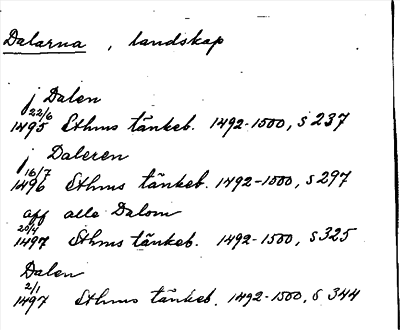 Dalarna, landskap
j Dalen
22/6
1495 Sthms tänkeb. 1492-1500, s 237
j Daleren
16/7
1496 Sthms tänkeb. 1492-1500, s 297
aff alle Dalom
20/4
1497 Sthms tänkeb. 1492-1500, s 325
Dalen
2/1
1497 Sthms tänkeb. 1492-1500, s 344